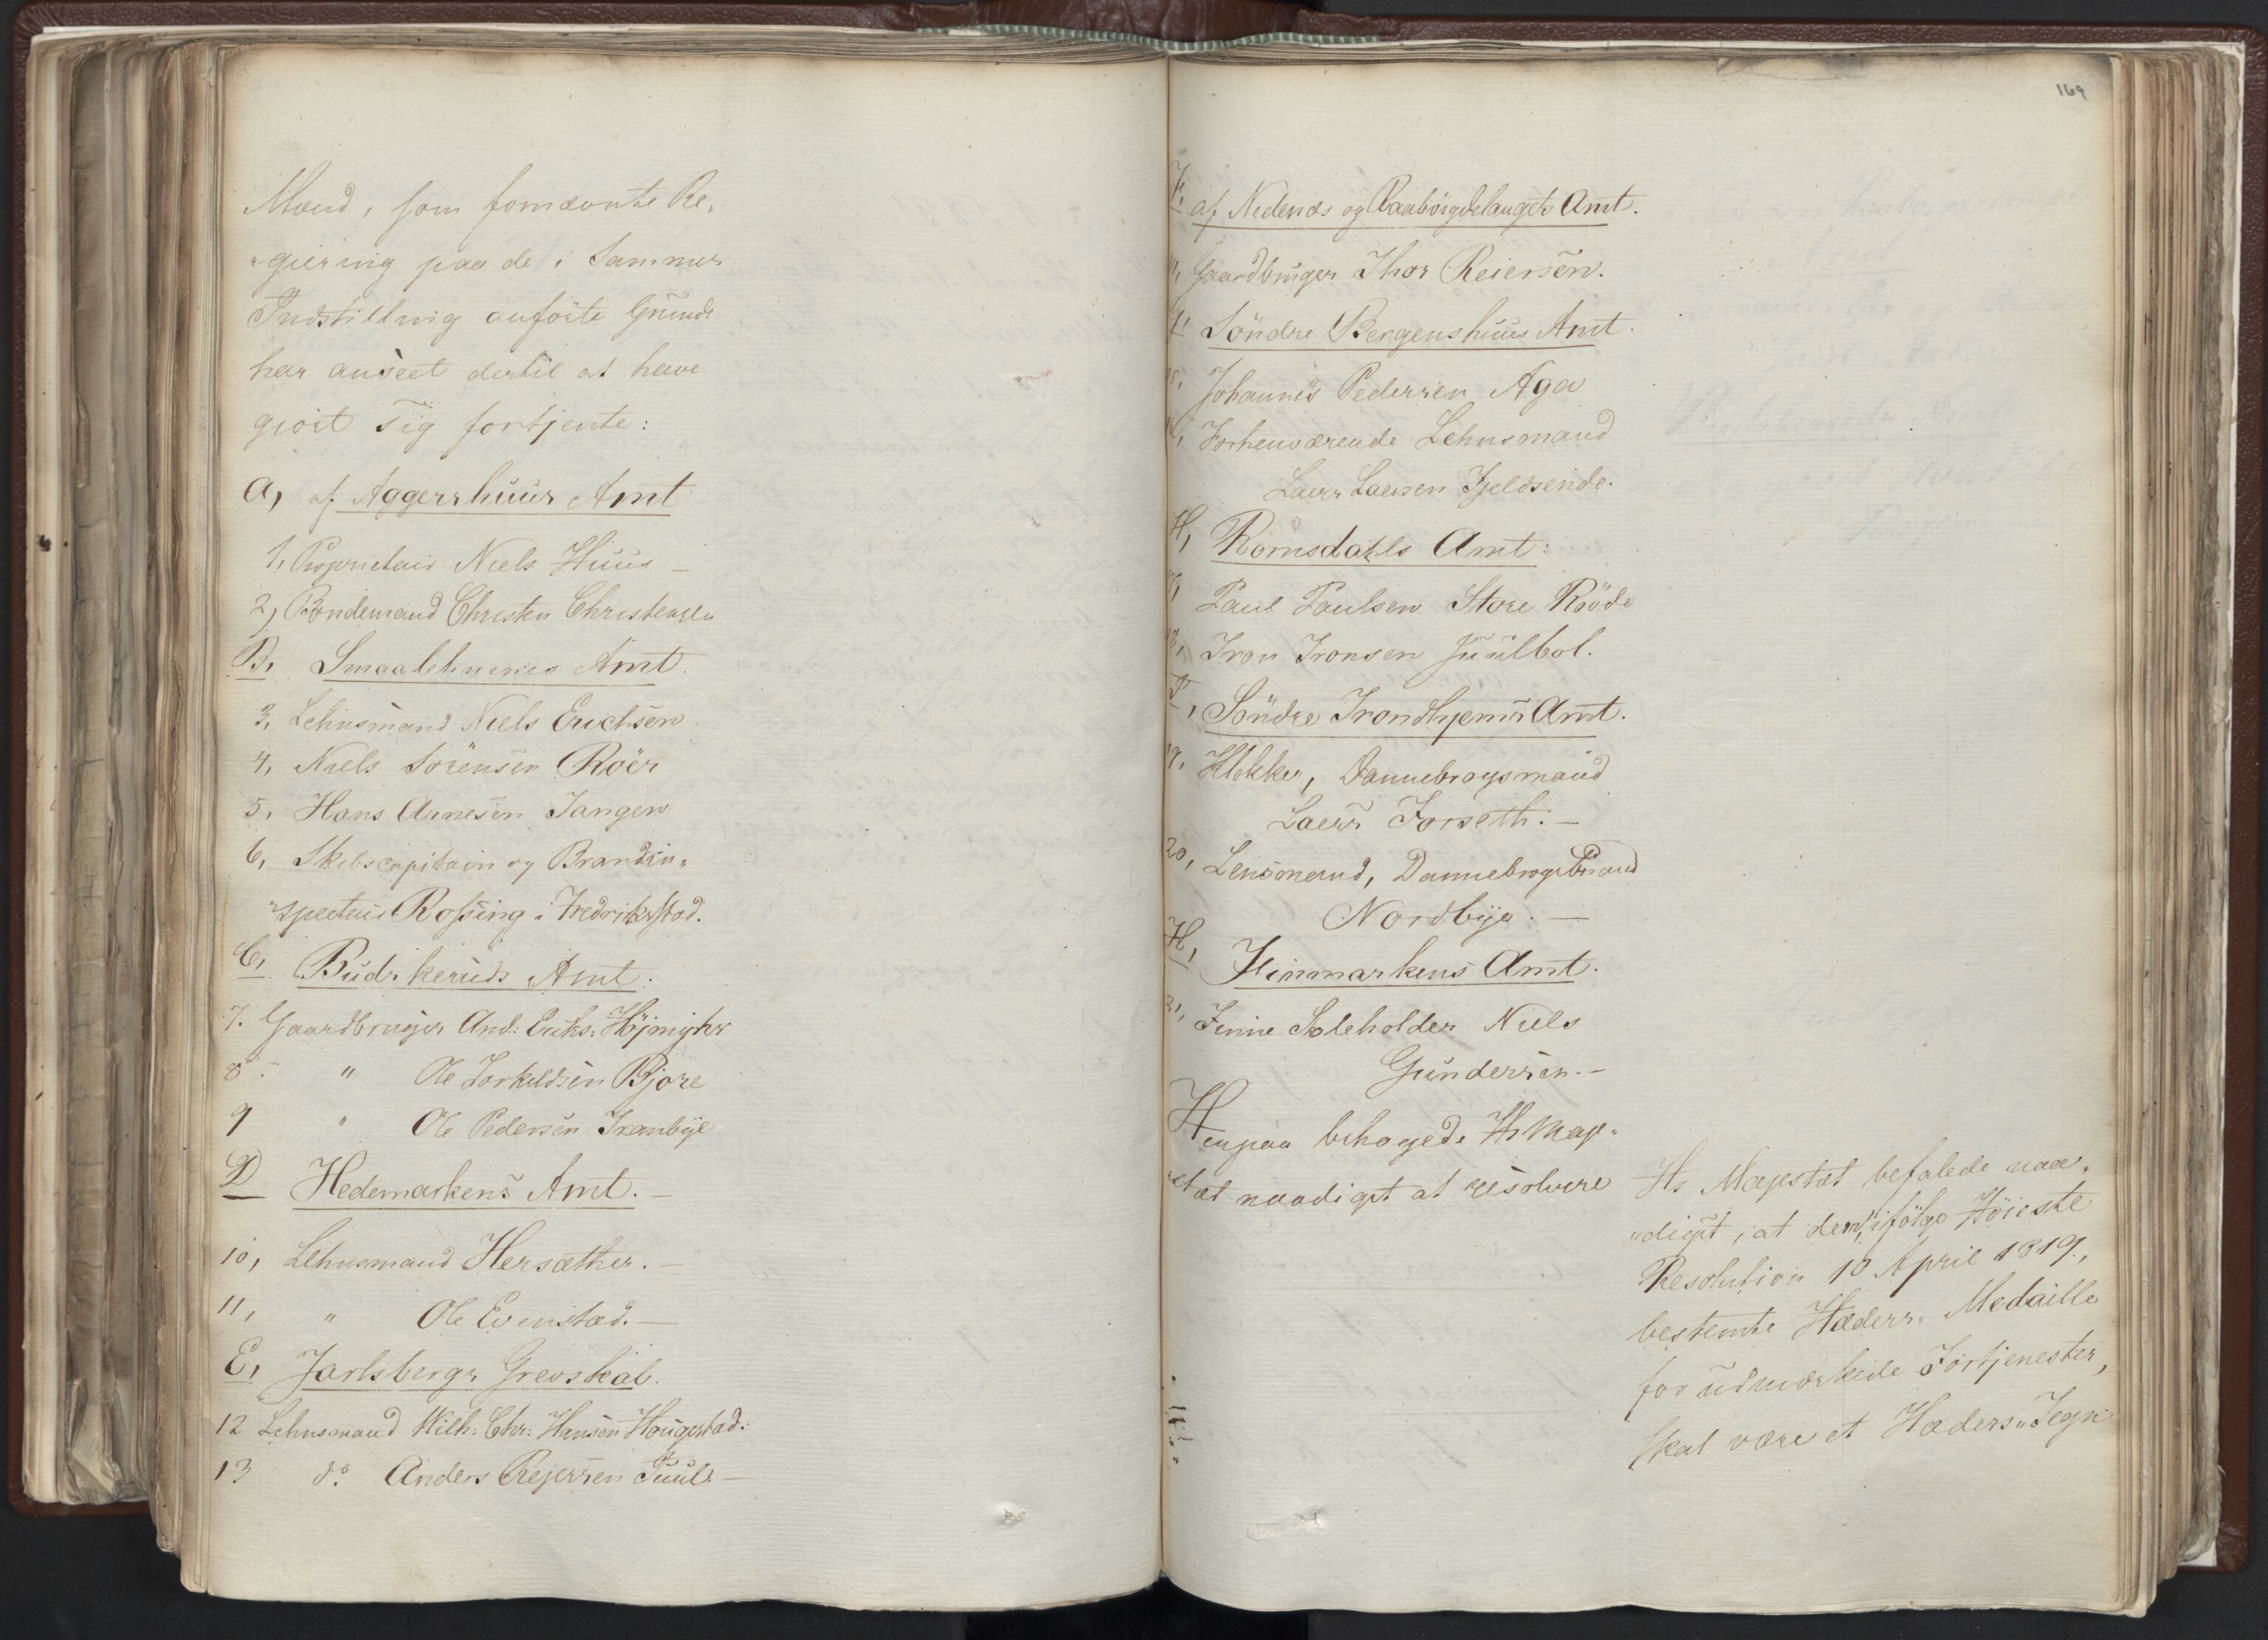 Mænd, som fornævnte Re„
„giering paa de i samme
Indstilling anførte Grunde
har anseet dertil at have
giort sig fortjente:
A, af Aggershuus Amt
1, Proprietair Niels Huus –
2, Bondemand Christen Christensen
B, Smaalehnenes Amt.
3, Lehnsmand Niels Erichsen
4, Niels Sörensen Röer
5, Hans Arnesen Tangen
6, Skibscapitain og Brandin„
„specteur Rossing i Fredrikstad.
C, Budskeruds Amt.
7. Gaardbruger And: Eriks:
8 " Ole Torkildsen Bjore
9 " Ole Pedersen Tranbye
D Hedemarkens Amt. –
10, Lehnsmand Hersæther. –
11, " Ole Evenstad. –
E, Jarlsbergs Grevskab.
12 Lehnsmand Wilh: Chr: Hansen Hougestad:
13 do. Anders Rejersen Juul –
169
F, af Nedenæs og Raabøigdelaugets Amt.
Gaardbruger Thor Reiersen.
Söndre Bergenshuus Amt.
Johannes Pedersen Aga
Forhenværende Lehnsmand
Laers Laersen Fjeldsende.
H, Romsdahls Amt:
Paul Paulsen Store Rööde
Iron Ironsen Juulbol.
I, Söndre Trondhjems Amt.
19, Klokker, Dannebrogsmand
Laers Forseth. –
20, Lensmand, Dannebrogsmand
Nordbye. –
K, Finmarkens Amt.
21, Finne Skoleholder Niels
Gundersen. –
Herpaa behagede Hs Maje„
„stæt naadigst at resolvere
Hs Majestæt befalede naa„
„digst, at den, ifölge Höieste
Resolution 10 April 1819.,
bestemte Hæders„Medaille
for udmærkede Fortjenester,
skal være et Hæders„Tegn